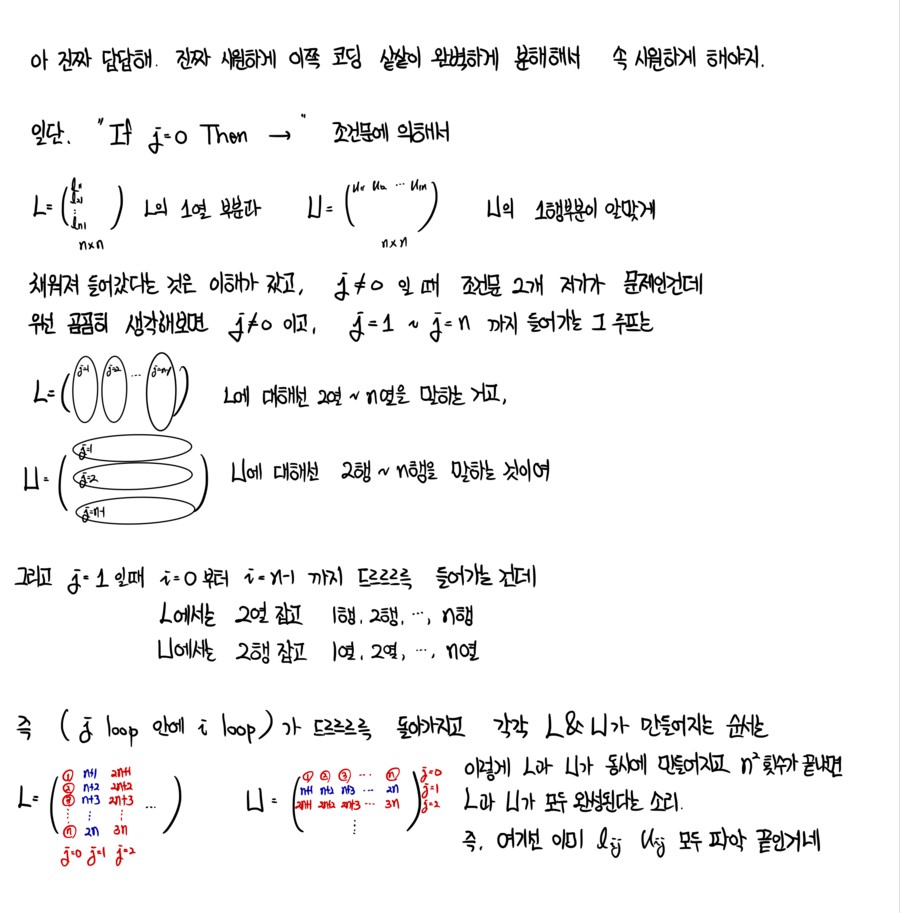 아 진짜 답답해. 진짜 시원하게 이쪽 코딩 샅샅이 완벽하게 분해해서 속 시원하게 해야지.
일단. "If j=0 Then → " 조건문에 의해서
L= ( l11 l21 ⋮ ln1 ) n×n L의 1열 부분과 U= ( u11 u12 ⋯ u1n ) n×n U의 1행부분이 알맞게
채워져 들어갔다는 것은 이해가 갔고, j≠0 일 때 조건문 2개 저기가 문제인건데
우선 곰곰히 생각해보면 j≠0 이고, j=1 ~ j=n 까지 들어가는 그 루프는
L= ( j=1 j=2 ⋯ j=n-1 ) L에 대해선 2열 ~ n열을 말하는 거고,
U= ( j=1 j=2 j=n-1 ) U에 대해선 2행 ~ n행을 말하는 것이여
그리고 j=1 일때 i=0 부터 i=n-1 까지 드르르륵 들어가는 건데
L에서는 2열 잡고 1행, 2행, ⋯, n행
U에서는 2행 잡고 1열, 2열, ⋯, n열
즉 ( j loop 안에 i loop ) 가 드르르르륵 돌아가지고 각각 L&U가 만들어지는 순서는
L= ( ① n+1 2n+1
② n+2 2n+2
③ n+3 2n+3 ⋯
⋮ ⋮ ⋮
ⓝ 2n 3n )
j=0 j=1 j=2
U= ( ① ② ③ ⋯ ⓝ ) j=0
n+1 n+2 n+3 ⋯ 2n j=1
2n+1 2n+2 2n+3 ⋯ 3n j=2
⋮
이렇게 L과 U가 동시에 만들어지고 n² 횟수가 끝나면
L과 U가 모두 완성된다는 소리.
즉, 여기선 이미 lij uij 모두 파악 끝인거네